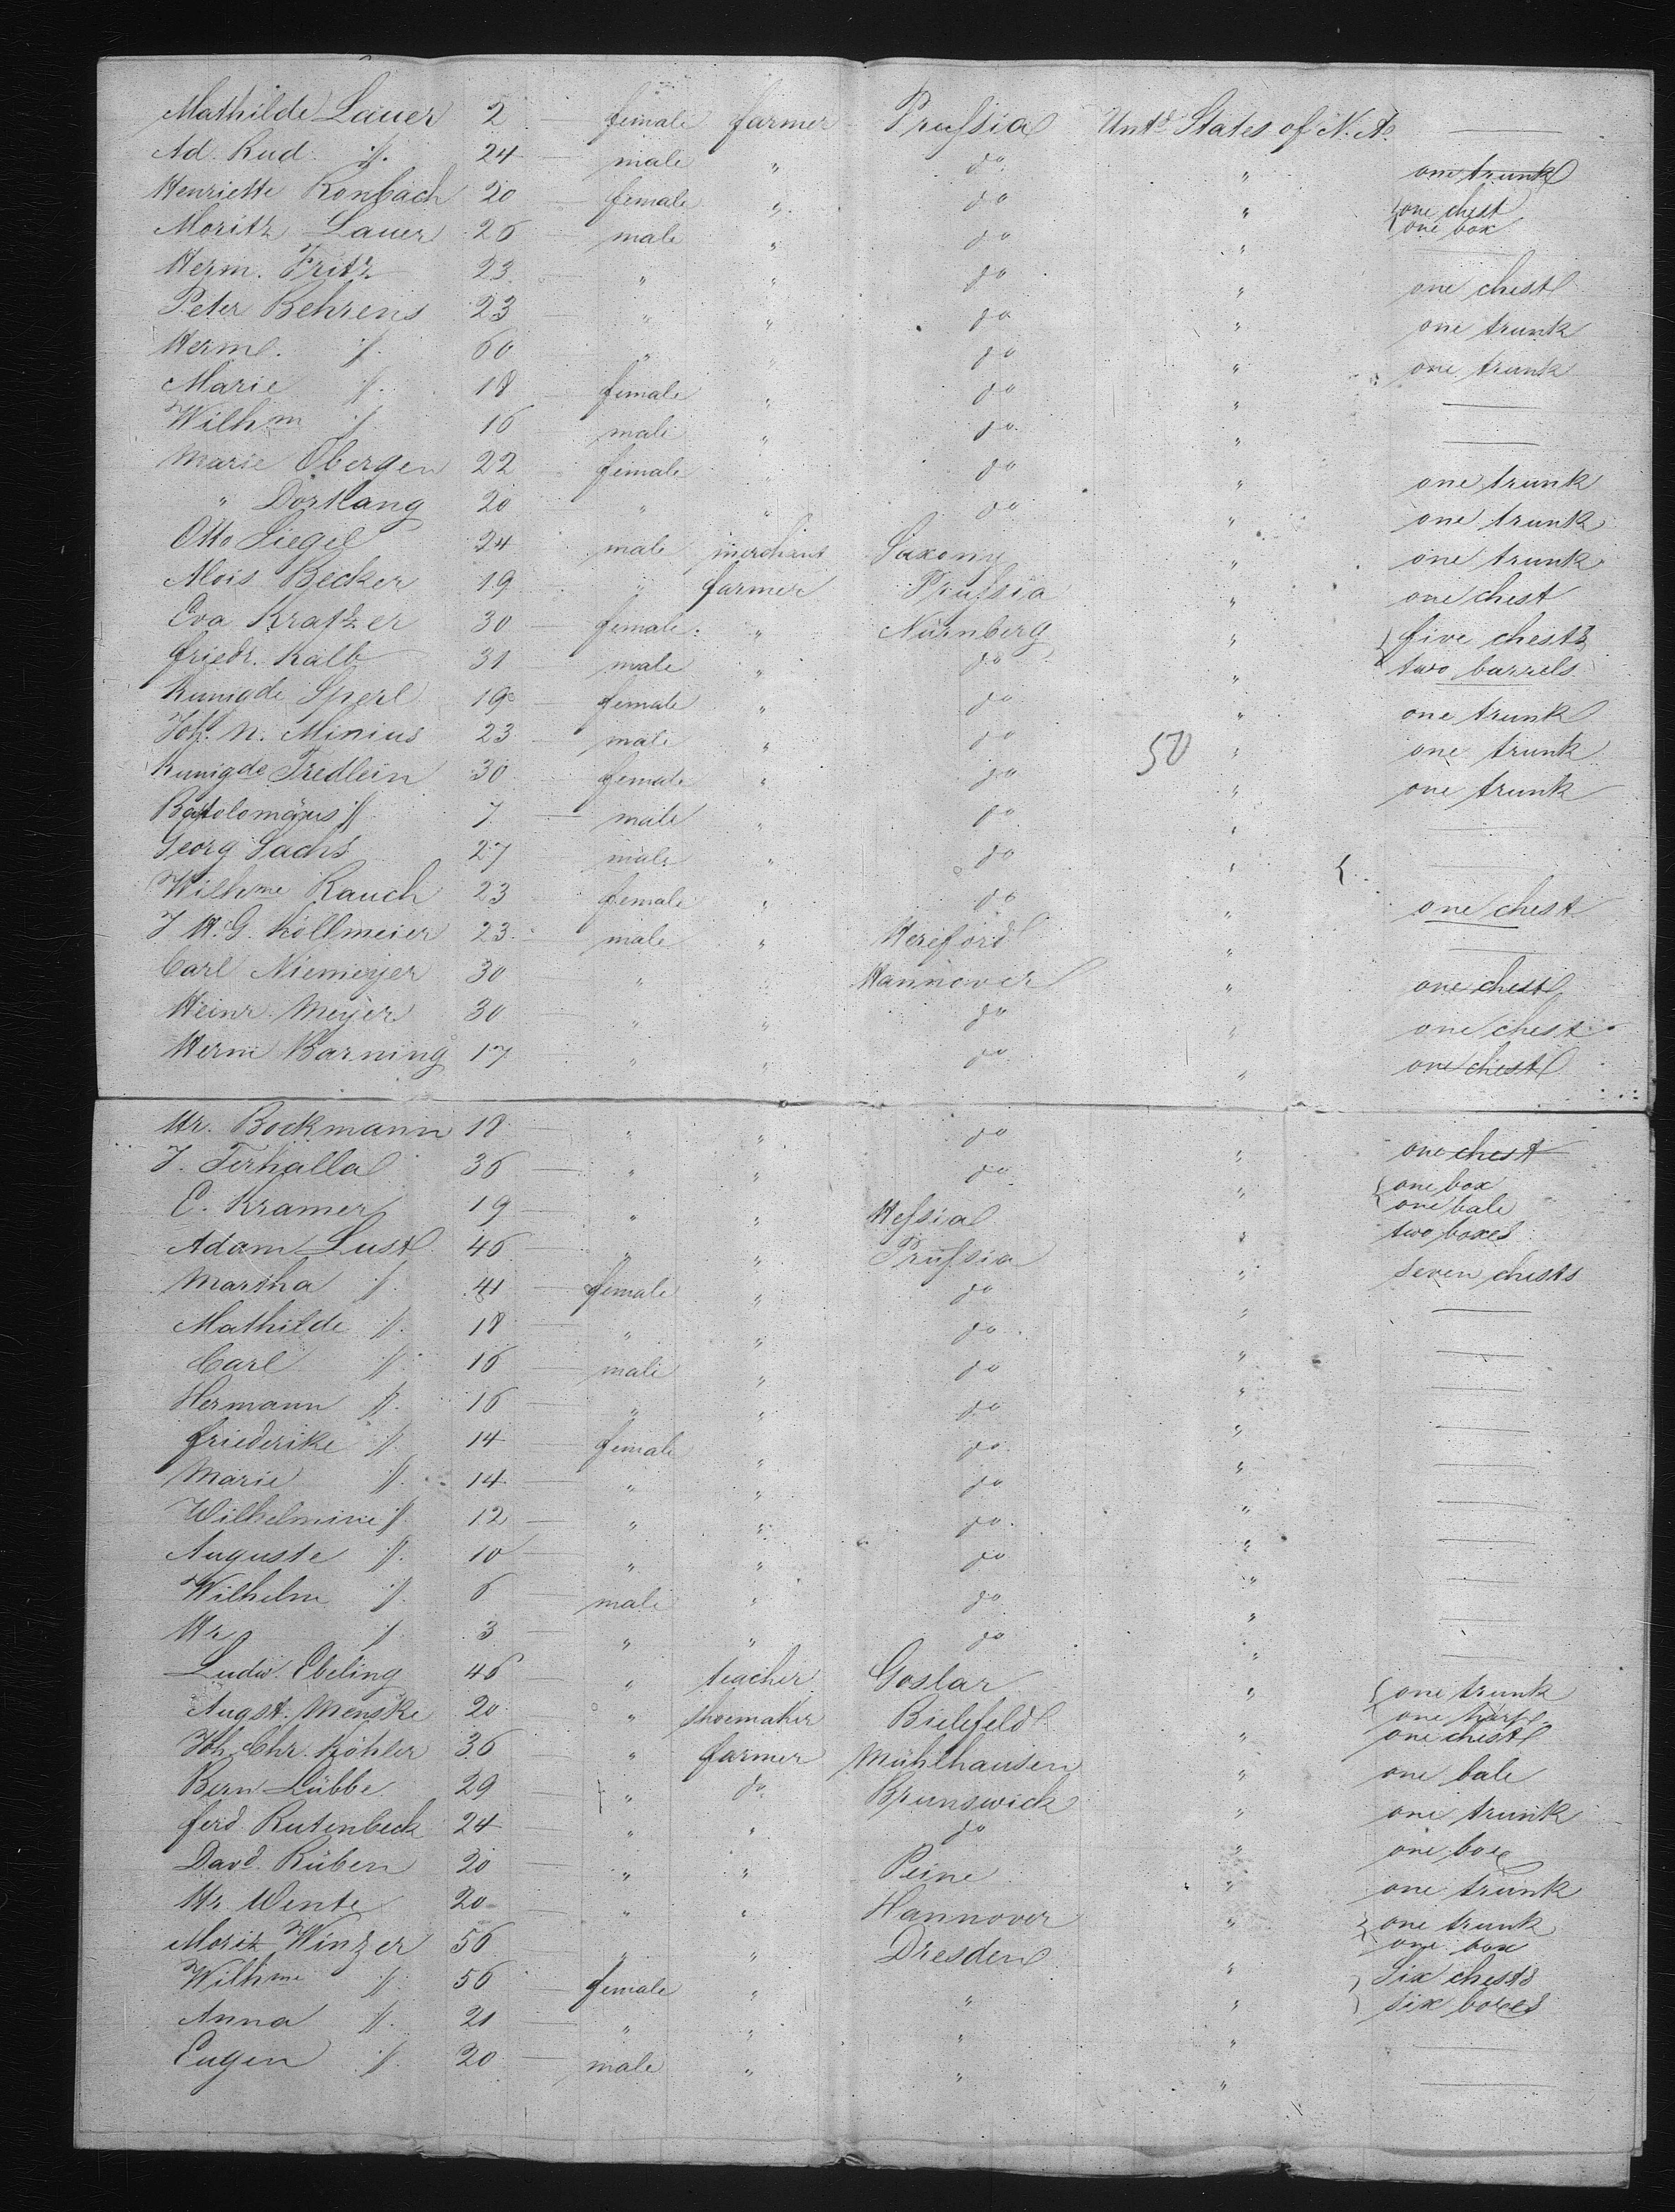 Mathilde Lauer 2 — female farmer Prussia Untd States of N. A. —
Ad. Rud. 〃 24 — male " do " one trunk
Henriette Ronbach 20 female " do " one chest one box
Moritz Lauer 26 — male " do " —
Herm. Fritz 23 — " " do " one chest
Peter Behrens 23 — " " do " one trunk
Herm. 〃 60 — " " do " one trunk
Marie 〃 18 — female " do " —
Wilhm 〃 16 — male " do " —
Marie Obergen 22 — female " do " one trunk
" Dorklang 20 — " " do " one trunk
Otto Siegel 24 male merchant Saxony " one trunk
Alois Becker 19 " farmer Prussia " one chest
Eva Kratzer 30 — female " Nürnberg " five chests
Friedr. Kalb 31 — male " do " two barrels
Kunigde Sperl 19 — female " do " one trunk
Joh. N. Minius 23 — male " do 50 " one trunk
Kunigde Fredlein 30 — female " do " one trunk
Bartolomäus 〃 7 — male " do " —
Georg Sachs 27 — male " do " —
Wilhme Rauch 23 — female " do " one chest
J. H. G. Köllmeier 23 — male " Hereford " —
Carl Niemeyer 30 — " " Hannover " one chest
Heinr. Meyer 30 — " " do " one chest
Herm Barning 17 — " " do " one chest
Hr. Bockmann 18 — " " do " one chest
J. Terhalla 36 — " " do " one box one bale
C. Kramer 19 — " " Hessia " two boxes
Adam Lust 46 — " " Prussia " seven chests
Martha 〃 41 — female " do " —
Mathilde 〃 18 — " " do " —
Carl 〃 16 — male " do " —
Hermann 〃 16 — " " do " —
Friederike 〃 14 — female " do " —
Marie 〃 14 — " " do " —
Wilhelmine 〃 12 — " " do " —
Auguste 〃 10 — " " do " —
Wilhelm 〃 6 — male " do " —
Hr. 〃 3 — " " do " —
Ludw. Ebeling 46 — " teacher Goslar " one trunk one
Augst. Menske 20 " shoemaker Bielefeld " one chest
Joh. Chr. Köhler 36 — " farmer Mühlhausen " one bale
Bern Lübbe 29 " do Brunswick " one trunk
Ferd. Rutenbeck 24 — " " do " one box
Davd. Rüben 20 — " " Peine " one trunk
Hr. Wente 20 — " " Hannover " one trunk one box
Moritz Winzer 56 — " " Dresden " six chests six boxes
Wilhme 〃 56 — female " " "
Anna 〃 21 — " " " " —
Eugen 〃 20 — male " " " —